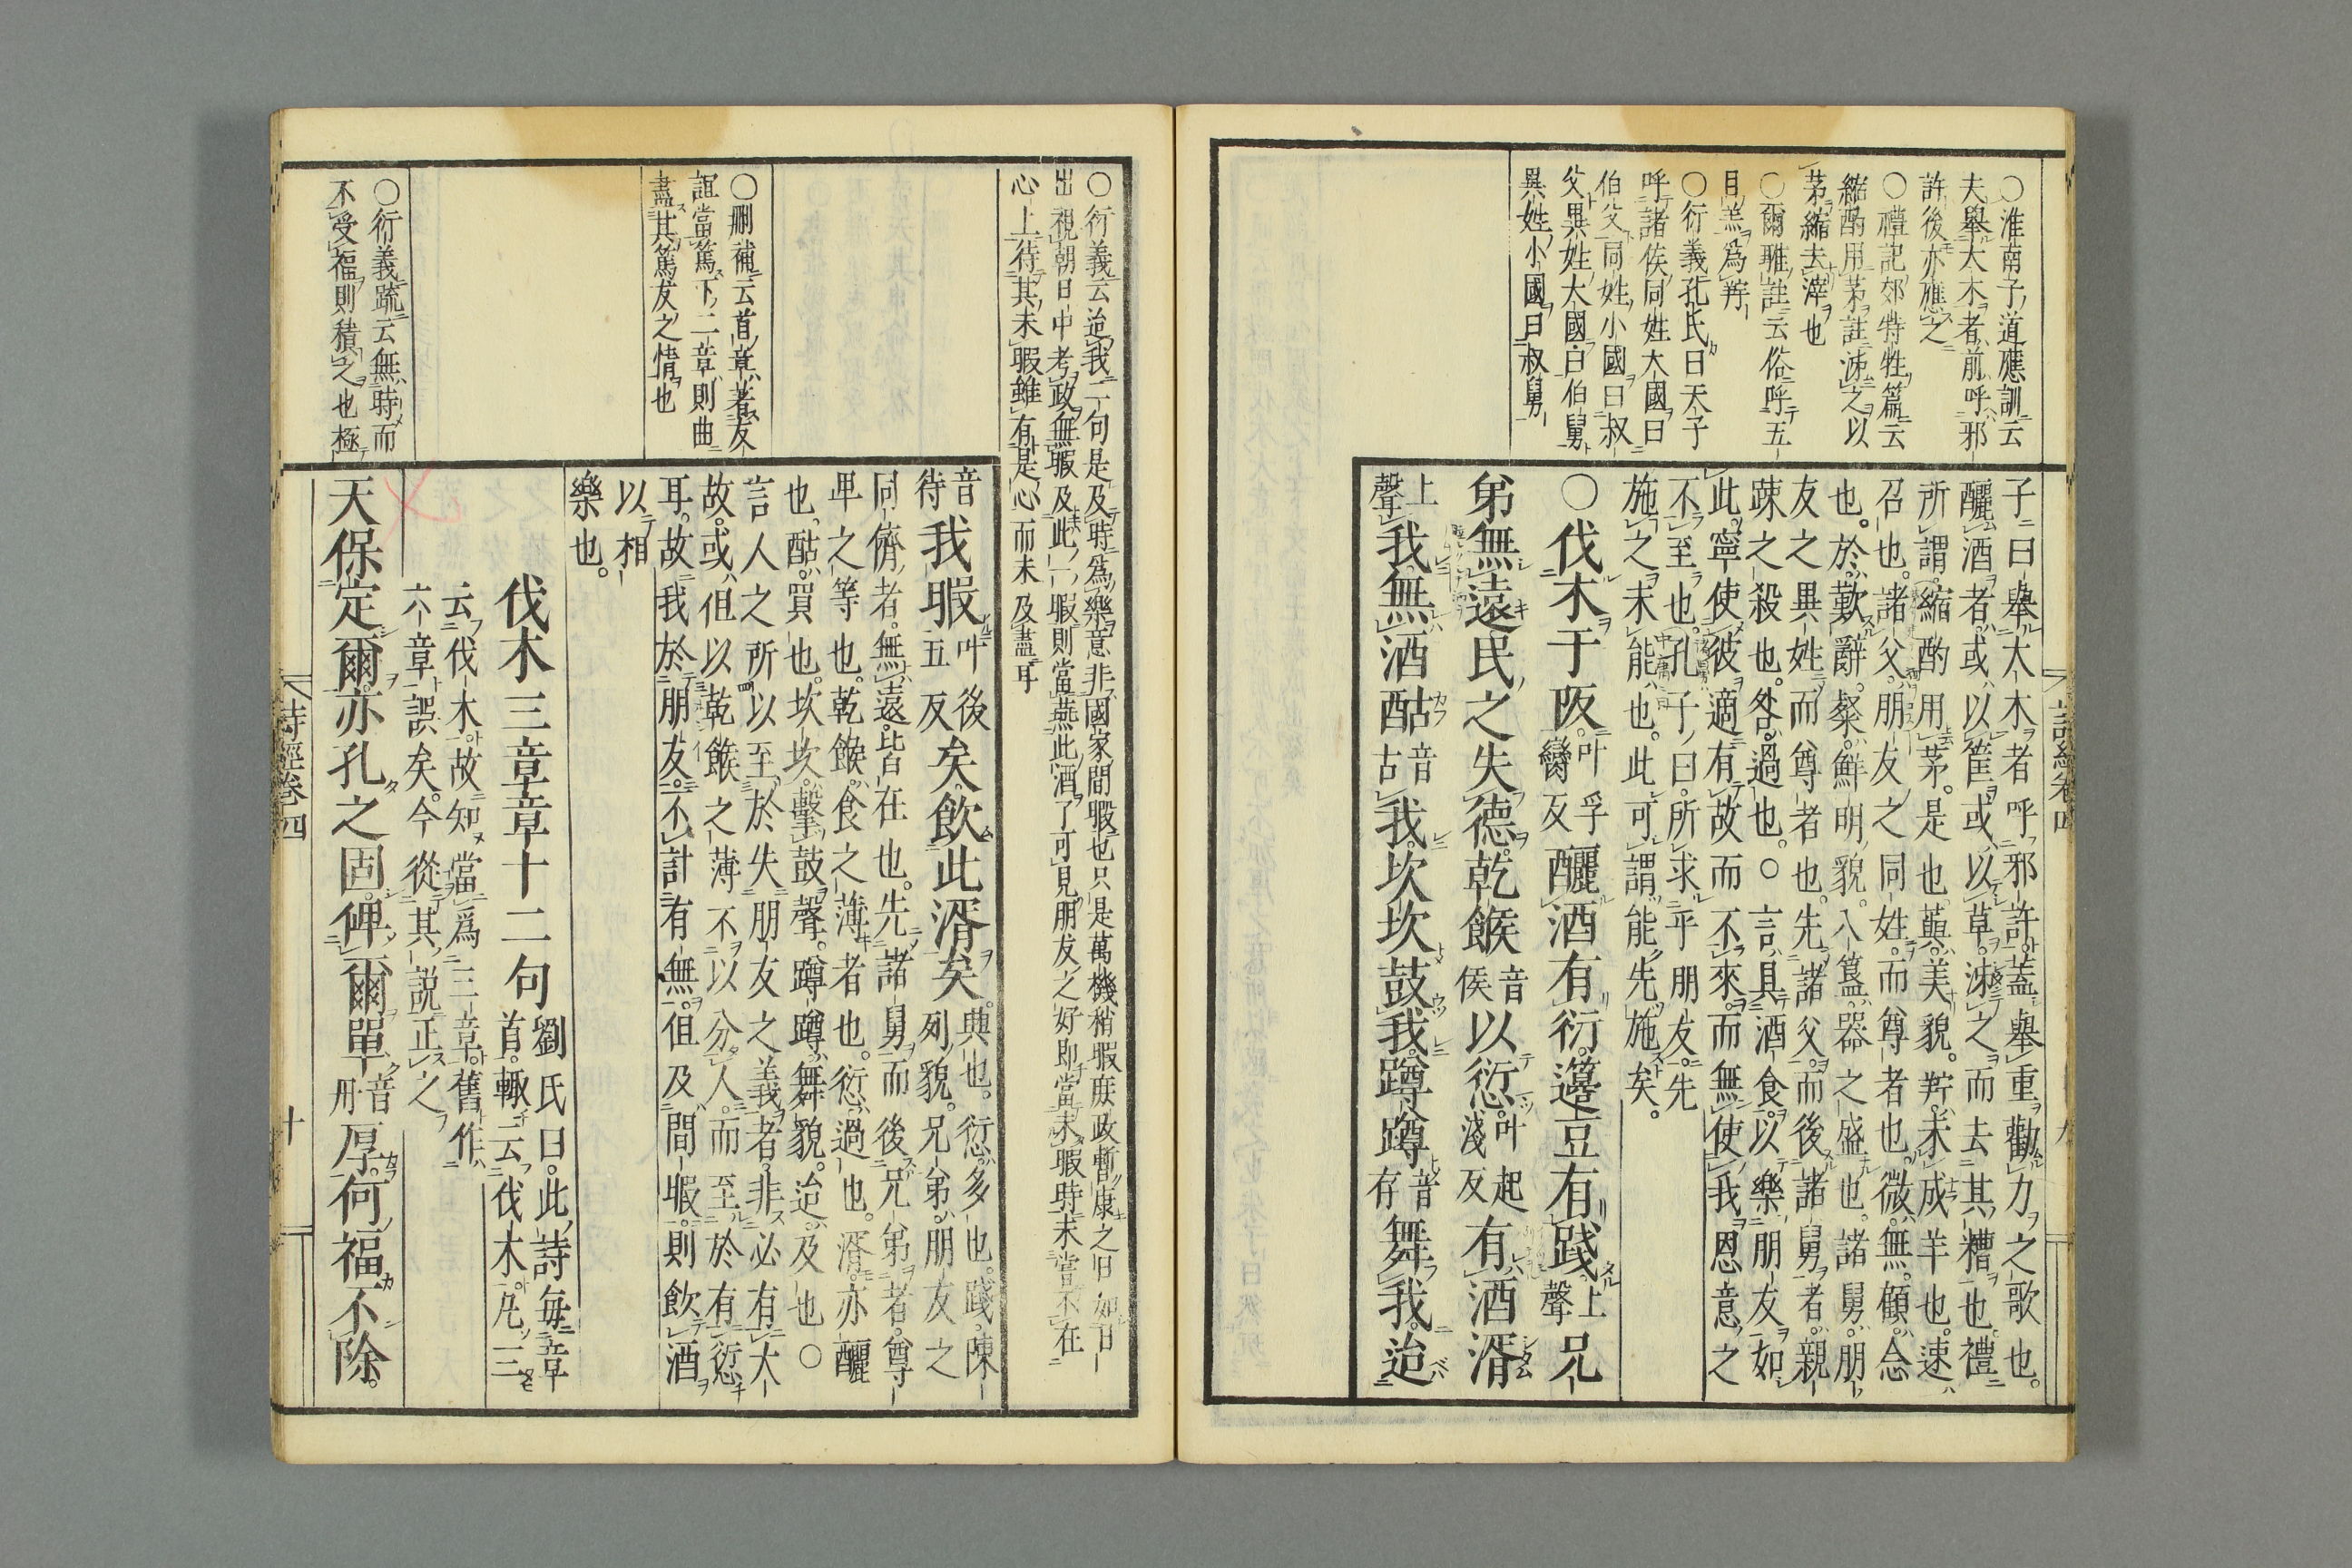 〇淮南子道應訓云
夫舉大木者前呼邪
許後亦應之
〇禮記郊特牲篇云
縮酌用茅註泲之以
茅縮去滓也
〇爾雅註云俗呼五
月羔爲羜
〇衍義孔氏曰天子
呼諸侯同姓大國曰
伯父同姓小國曰叔
父異姓大國曰伯舅
異姓小國曰叔舅
詩經卷四
九
子曰舉大木者呼邪許蓋舉重勸力之歌也。
釃酒者或以筐或以草泲之而去其糟也禮
所謂縮酌用茅。是也藇美貌。羜未成羊也。速
召也。諸父朋友之同姓而尊者也。微無。顧念
也。於歎辭。粲鮮明貌。八簋器之盛也。諸舅。朋
友之異姓而尊者也。先諸父。而後諸舅者。親
踈之殺也。咎過也。〇言具酒食。以樂朋友。如
此。寧使彼適有故而不來。而無使我恩意之
不至也。孔子曰。所求乎朋友。先
施之未能也。此可謂能先施矣。
〇伐木于阪。叶孚臠反釃酒有衍。籩豆有踐。上聲兄
弟無遠民之失德。乾餱音侯以愆。叶起淺反有酒湑
上聲我無酒酤音古我。坎坎鼓我。蹲蹲音存舞我。迨
〇衍義云迨我二句是及時爲樂意非國家間暇也只是萬機稍暇庶政暫康之日如日
出視朝日中考政無暇及此一暇則當燕此酒了可見朋友之好即當未暇時未嘗不在
心上待其未暇雖有是心而未及盡耳
音待我暇叶後五反矣。飲此湑矣。典也。衍多也。踐陳
列貌。兄弟。朋友之
同儕者。無遠。皆在也。先諸舅而後兄弟者。尊
卑之等也。乾餱食之薄者也。愆過也。湑亦釃
也。酤買也。坎坎。擊鼓聲。蹲蹲舞貌。迨及也〇
言人之所以至於失朋友之義者。非必有大
故。或但以乾餱之薄不以分人。而至於有愆
耳。故我於朋友。不計有無。但及間暇。則飲酒
以相
樂也。
〇刪補云首章著友
誼當篤下二章則曲
盡其篤友之情也
伐木三章章十二句劉氏曰。此詩每章
首。輙云伐木。凡三
云伐木故知當爲三章。舊作
六章誤矣。今從其説正之
〇衍義疏云無時而
不受福則積之也極
天保定爾。亦孔之固。俾爾單音丹厚。何福不除。
詩經卷四
十